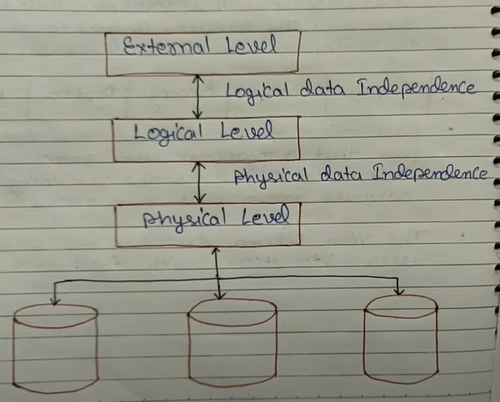 External Level
Logical data Independence
Logical Level
Physical data Independence
Physical Level